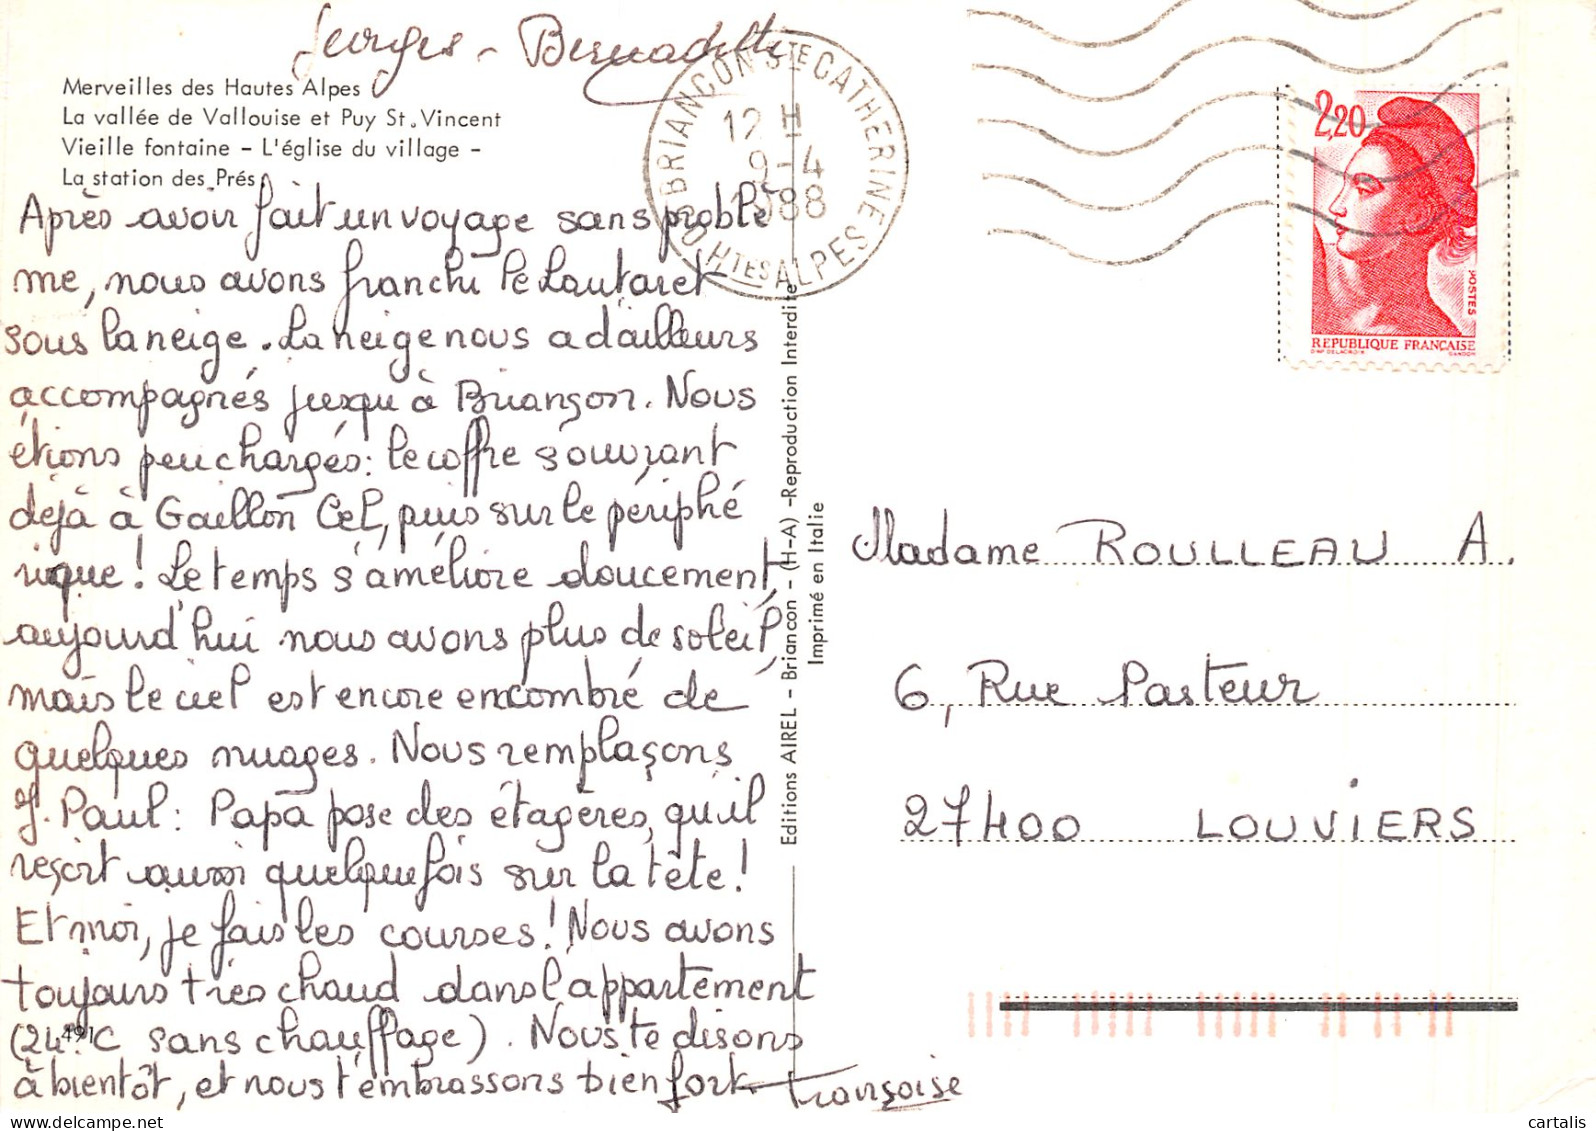 Georges - Bernadette
Merveilles des Hautes Alpes
La vallée de Vallouise et Puy St. Vincent
Vieille fontaine - L'église du village -
La station des Prés.
Après avoir fait un voyage sans problè
me, nous avons franchi le Lautaret
sous la neige. La neige nous a d'ailleurs
accompagnés jusqu'à Briançon. Nous
étions peu chargés: le coffre s'ouvrant
déjà à Gaillon Cel, puis sur le périphé
rique! Le temps s'améliore doucement,
aujourd'hui nous avons plus de soleil,
mais le ciel est encore encombré de
quelques nuages. Nous remplaçons
J. Paul: Papa pose des étagères, qu'il
reçoit aussi quelquefois sur la tête!
Et moi, je fais les courses! Nous avons
toujours très chaud dans l'appartement
(24° C sans chauffage). Nous te disons
à bientôt, et nous t'embrassons bien fort.
Françoise
491
BRIANCON STE CATHERINE
12 H
9-4
1988
05 HTES ALPES
Editions AIREL - Briancon - (H-A) -Reproduction Interdite
Imprimé en Italie
2,20
POSTES
REPUBLIQUE FRANÇAISE
D'AP DELACROIX GANDON
Madame ROULLEAU A.
6, Rue Pasteur
27400 LOUVIERS
cartalis - delcampe.net